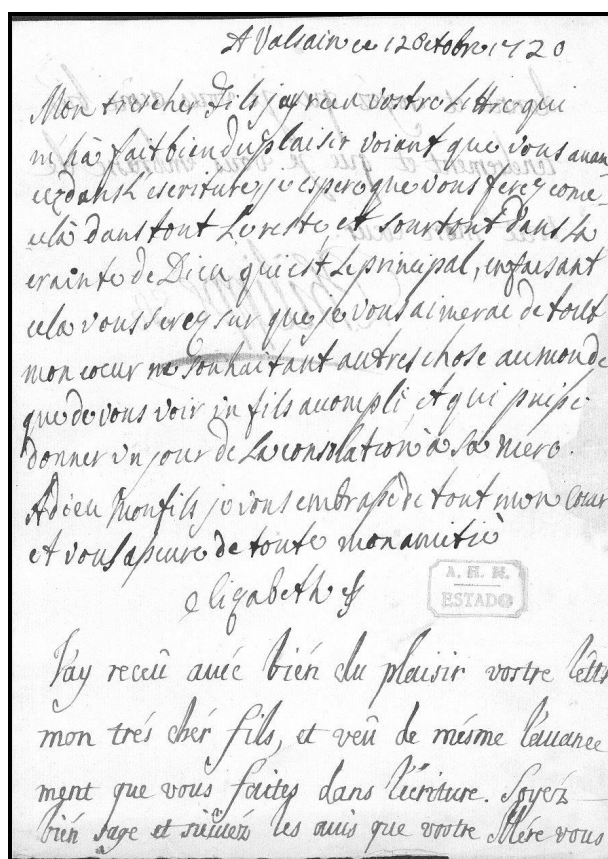 A Valsain ce 12 8ctobre 1720
Mon trescher fils jay reçu vostre lettre qui
m'hà fait bien du plaisir voiant que vous auan
cez dans L escriture, je espere que vous ferez come
celà dans tout Le reste, et sourtout dans La
crainte de Dieu qui est Le principal, en faisant
cela vous serez sur que je vous aimerai de tout
mon coeur ne souhaitant autres chose au monde
que de vous voir un fils accompli et qui puisse
donner un jour de La consolation à sa mere.
Adieu Mon fils je vous embrasse de tout mon Cœur
et vous assure de toute mon amitiè
elizabeth
A. H. N.
ESTADO
J'ay receû avéc bién du plaisir vostre lêttr
mon trés chér fils, et veû de mésme l'auance
ment que vous faites dans l'ecriture. Soyéz
bién sage et suiuéz les auis que vostre Mére vous